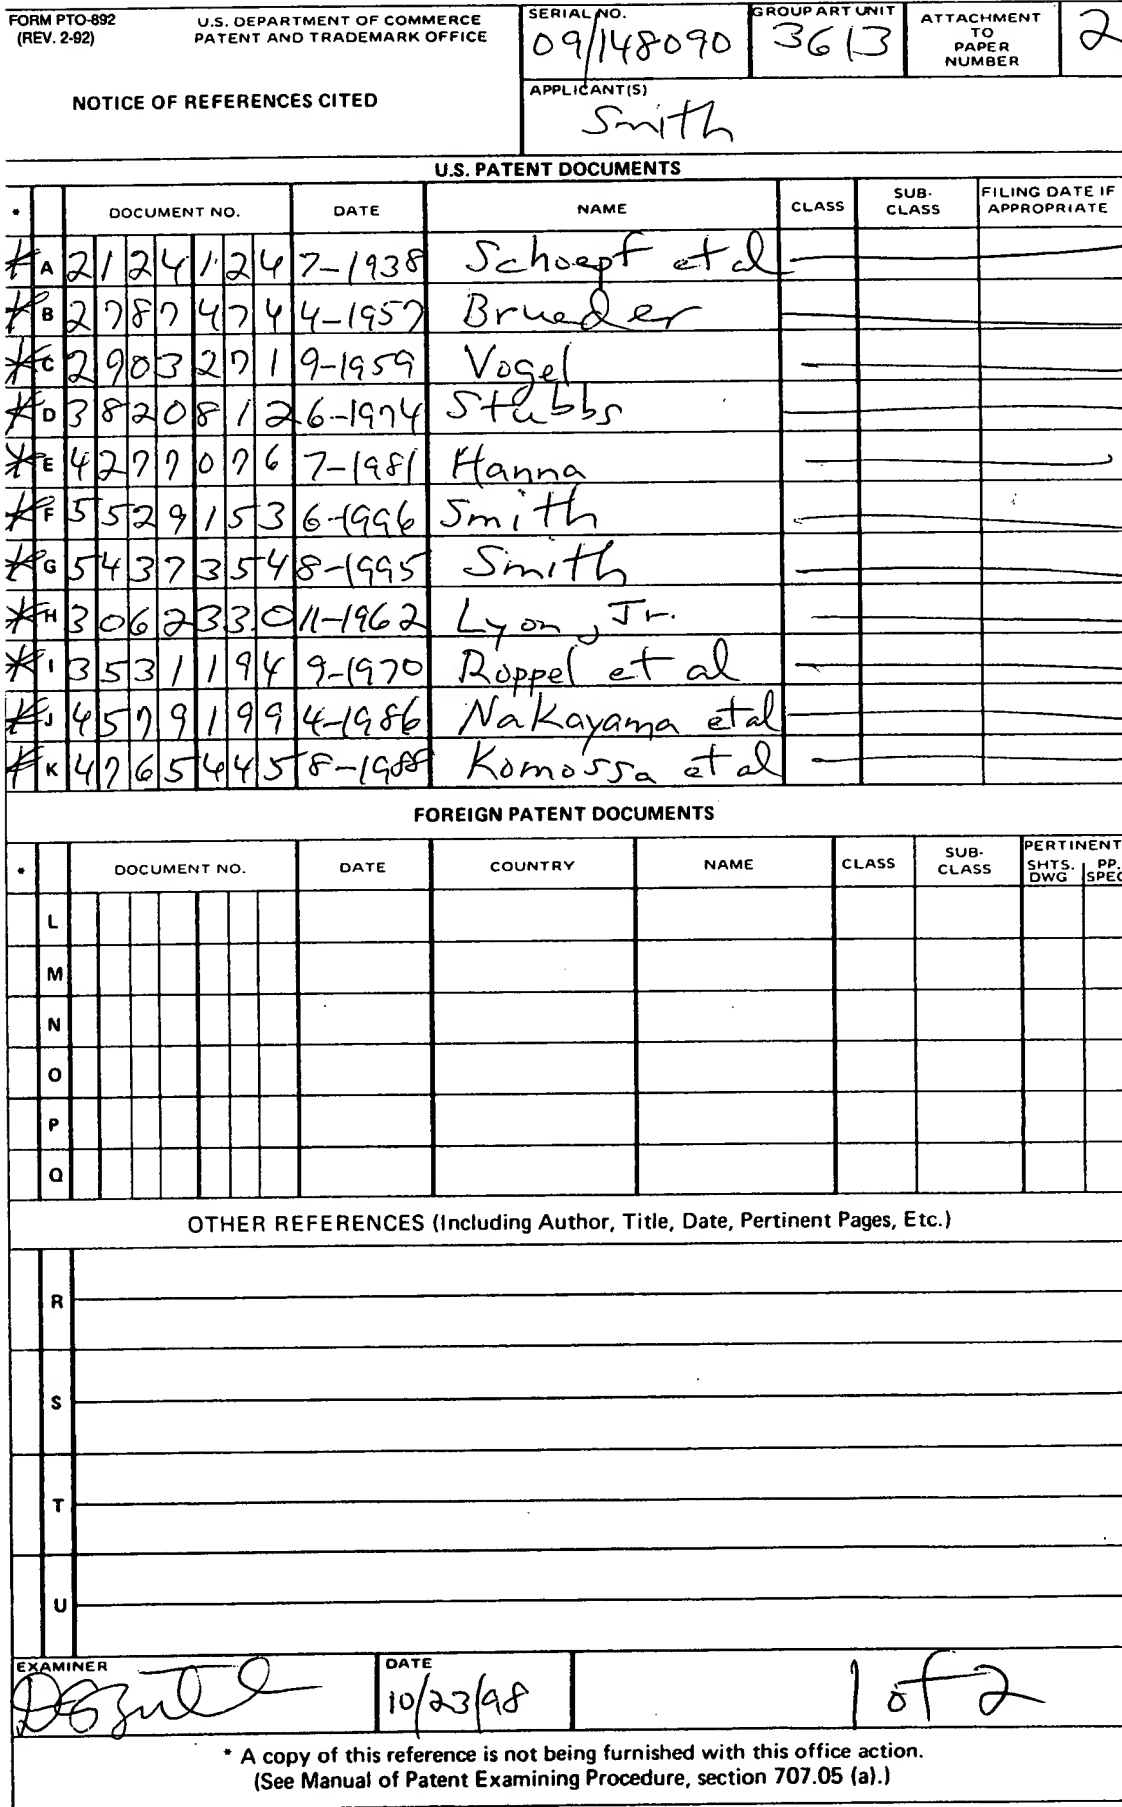 FORM PTO-892 U.S. DEPARTMENT OF COMMERCE
(REV. 2-92) PATENT AND TRADEMARK OFFICE
NOTICE OF REFERENCES CITED
SERIAL NO. GROUP ART UNIT ATTACHMENT TO PAPER NUMBER
09/148090 3613 2
APPLICANT(S)
Smith
U.S. PATENT DOCUMENTS
* DOCUMENT NO. DATE NAME CLASS SUB-CLASS FILING DATE IF APPROPRIATE
* A 2124124 7-1938 Schoepf et al
* B 2787474 4-1957 Brueder
* C 2903271 9-1959 Vogel
* D 3820812 6-1974 Stubbs
* E 4277076 7-1981 Hanna
* F 5529153 6-1996 Smith
* G 5437354 8-1995 Smith
* H 3062330 11-1962 Lyon, Jr.
* I 3531194 9-1970 Roppel et al
* J 4579199 4-1986 Nakayama et al
* K 4765445 8-1988 Komossa et al
FOREIGN PATENT DOCUMENTS
* DOCUMENT NO. DATE COUNTRY NAME CLASS SUB-CLASS PERTINENT SHTS. DWG PP. SPEC
L
M
N
O
P
Q
OTHER REFERENCES (Including Author, Title, Date, Pertinent Pages, Etc.)
R
S
T
U
EXAMINER DATE
10/23/98 1 of 2
* A copy of this reference is not being furnished with this office action.
(See Manual of Patent Examining Procedure, section 707.05 (a).)